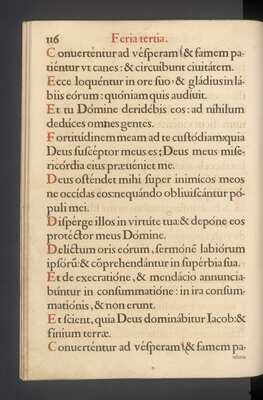 116 Feria tertia.
Conuertentur ad vésperam, & famem pa-
tiéntur vt canes: & circuíbunt ciuitátem.
Ecce loquéntur in ore suo, & gládius in lá-
biis eorum: quóniam quis audíuit.
Et tu Dómine deridébis eos: ad níhilum
dedúces omnes gentes.
Fortitúdinem meam ad te custódiam, quia
Deus suscéptor meus es; Deus meus mise-
ricórdia eius præuéniet me.
Deus osténdet mihi super inimícos meos
ne occídas eos: nequándo obliuiscántur pó-
puli mei.
Dispérge illos in virtúte tua: & depóne eos
protéctor meus Dómine.
Delíctum oris eórum, sermóné labiórum
ipsórū: & cōprehendántur in supérbia sua.
Et de execratióne, & mendácio annuncia-
búntur in consummatióne: in ira consum-
matiónis, & non erunt.
Et scient, quia Deus dominábitur Iacob: &
finium terræ.
Conuertentur ad vésperam, & famem pa-